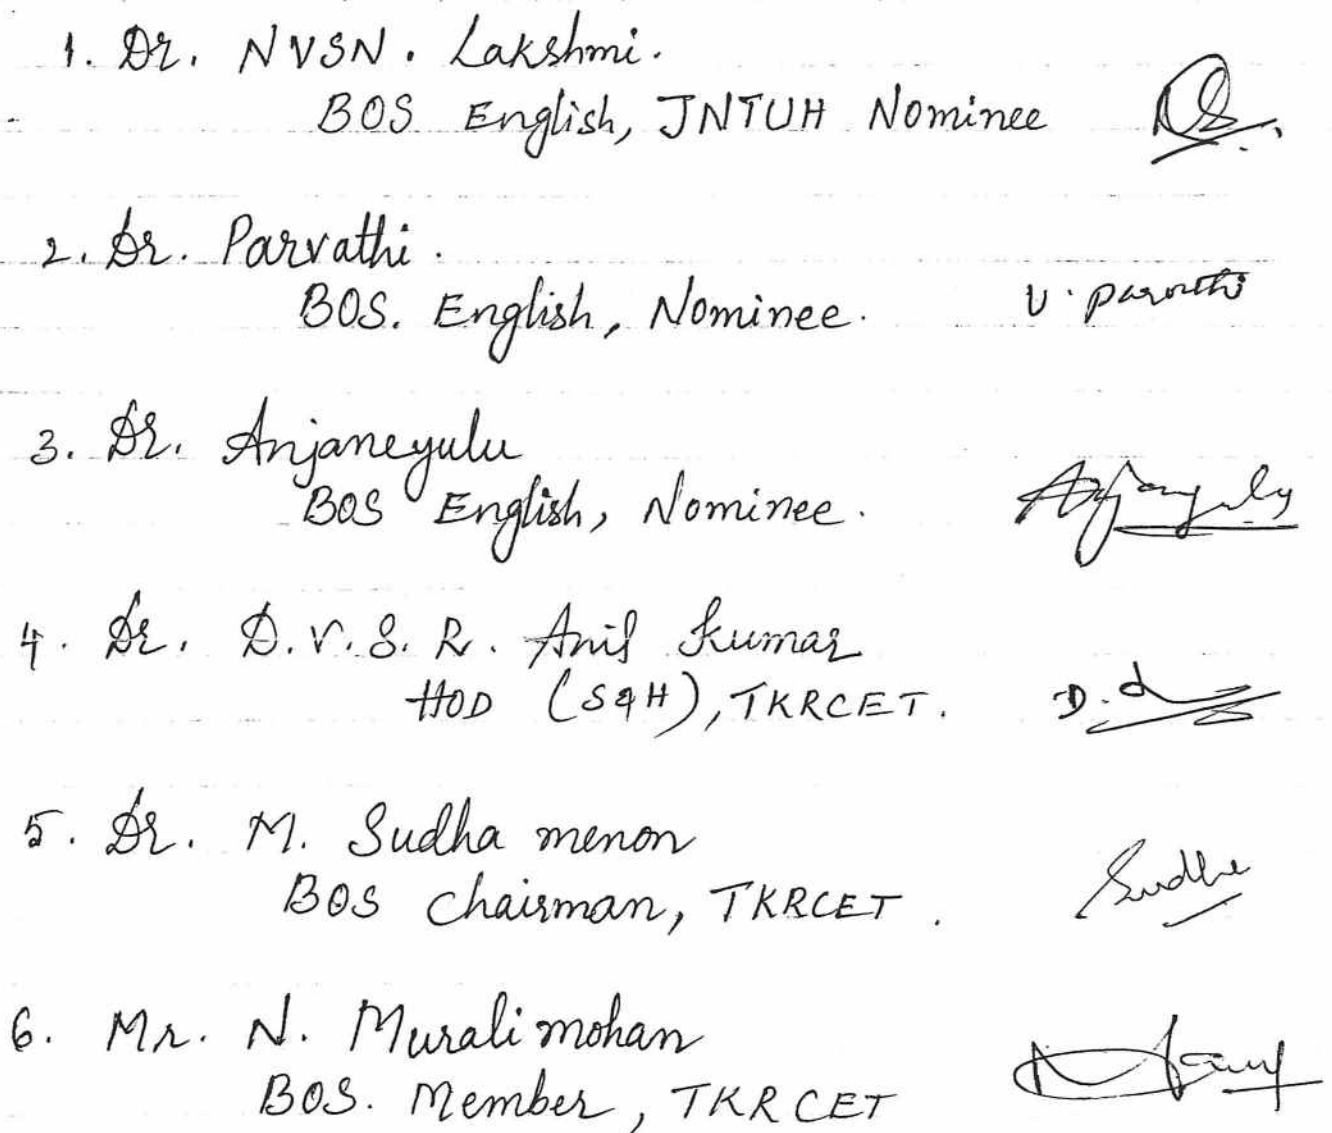 1. Dr. NVSN. Lakshmi.
BOS English, JNTUH Nominee
2. Dr. Parvathi.
BOS. English, Nominee. V. Parvathi
3. Dr. Anjaneyulu
BOS English, Nominee. Anjaneyulu
4. Dr. D.V.S.R. Anil Kumar
HOD (S&H), TKRCET. D.
5. Dr. M. Sudha menon
BOS Chairman, TKRCET. Sudha
6. Mr. N. Murali mohan
BOS. Member, TKRCET